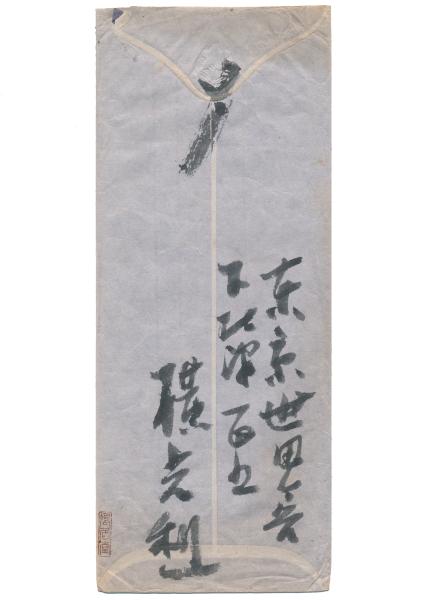 東京世田ヶ谷
下北澤 百五
横光利一